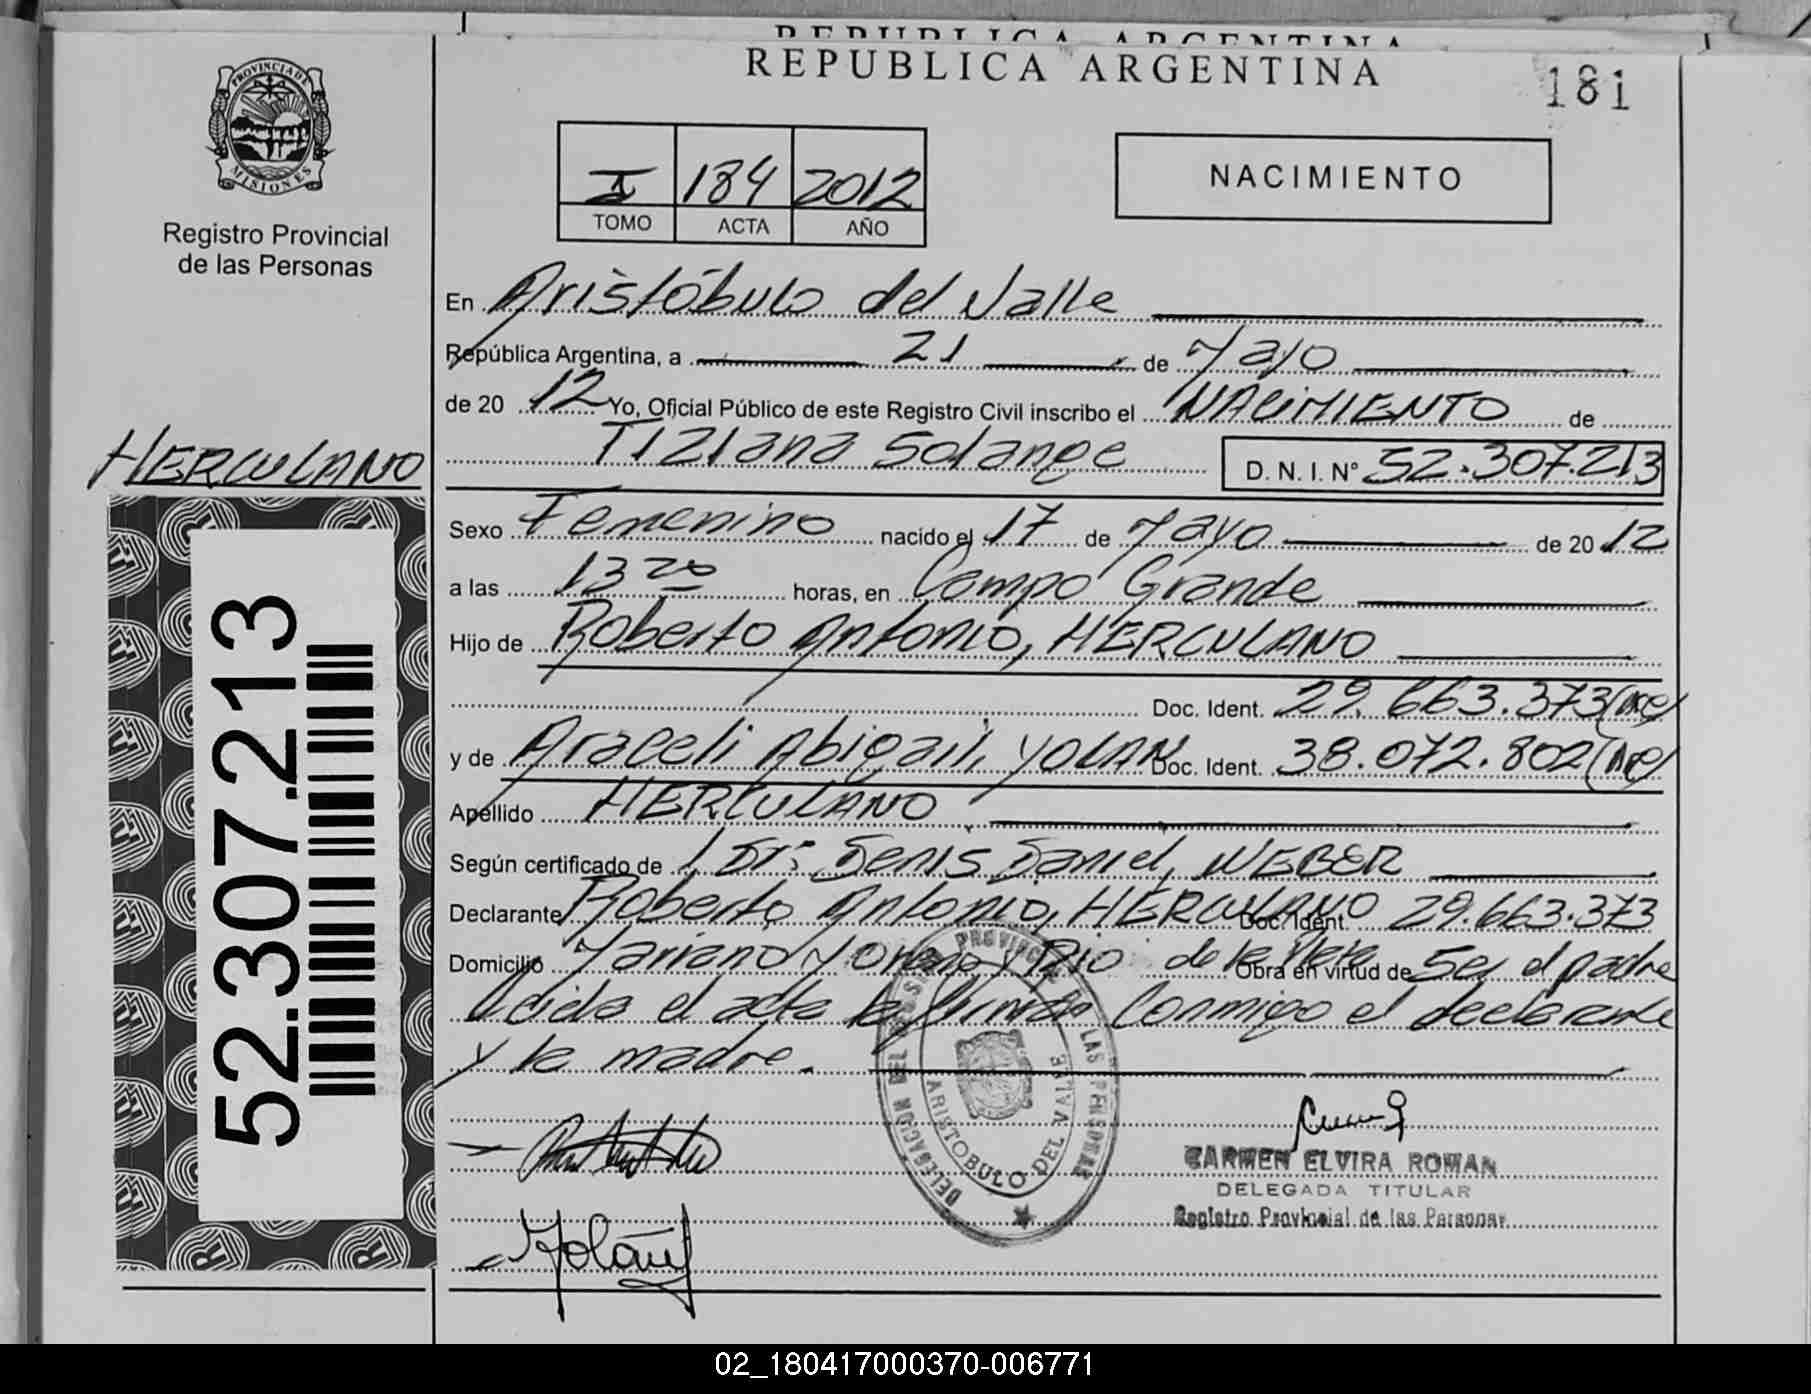 REPUBLICA ARGENTINA
REPUBLICA ARGENTINA
181
PROVINCIA DE
MISIONES
Registro Provincial
de las Personas
I 184 2012
TOMO ACTA AÑO
NACIMIENTO
En Aristóbulo del Valle
República Argentina, a 21 de Mayo
de 2012 Yo, Oficial Público de este Registro Civil inscribo el NACIMIENTO de
Tiziana Solange D. N. I. N° 52.307.213
HERCULANO
Sexo Femenino nacido el 17 de Mayo de 2012
a las 13 20 horas, en Campo Grande
Hijo de Roberto Antonio, HERCULANO
Doc. Ident. 29.663.373
y de Araceli Abigail, YOLAN Doc. Ident. 38.072.802
Apellido HERCULANO
Según certificado de Dr: Denis Daniel, WEBER
Declarante Roberto Antonio, HERCULANO Doc. Ident. 29.663.373
Domicilio Mariano Moreno y Rio de la Plata Obra en virtud de Ser el padre
Leida el acta la firman Conmigo el declarante
y la madre.
52.307.213
DELEGACION DEL REGISTRO PROVINCIAL DE LAS PERSONAS
ARISTOBULO DEL VALLE
CARMEN ELVIRA ROMAN
DELEGADA TITULAR
Registro Provincial de las Personas
02_180417000370-006771